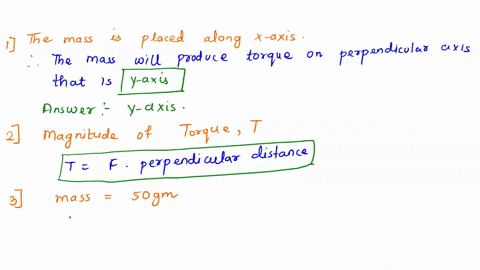 1] The mass is placed along x-axis.
∴ The mass will produce torque on perpendicular axis
that is y-axis
Answer:- y-axis.
2] Magnitude of Torque, T
T = F. perpendicular distance
3] mass = 50gm